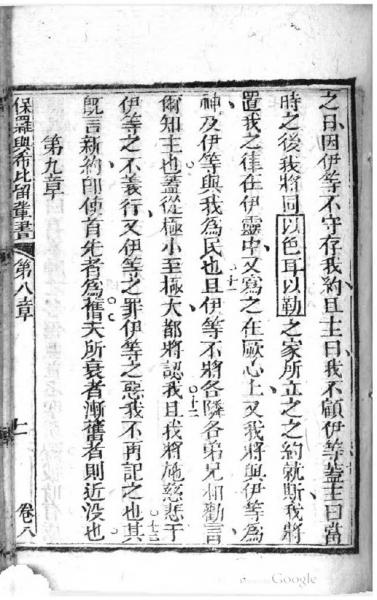 之日因伊等不守存我約且主曰我不顧伊等蓋主曰當
時之後我將同以色耳以勒之家所立之之約就斯我將
置我之律在伊靈中又寫之在厥心上又我將與伊等為
神及伊等與我為民也且伊等不將各隣各弟兄相勸言
爾知主也蓋從極小至極大都將認我且我將施慈悲于
伊等之不義行又伊等之罪伊等之惡我不再記之也其
旣言新約即使首先者為舊夫所衰者漸舊者則近没也
第九章
保羅與希比留輩書 第八章 十一 卷八
十一
十二
十三
Google